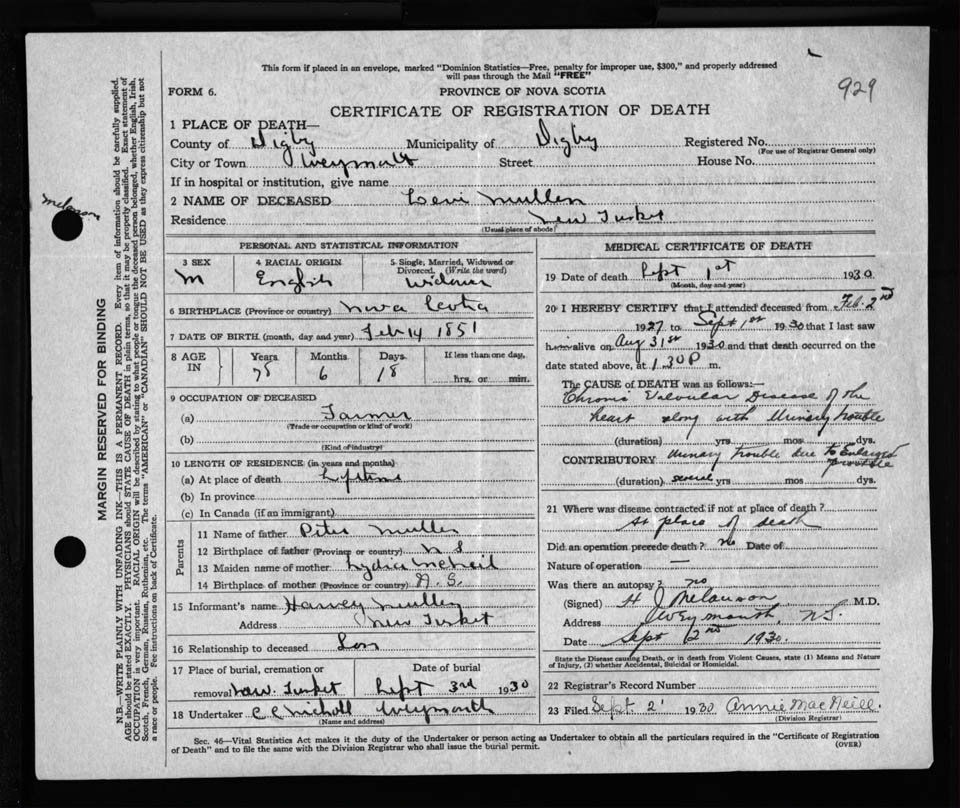 This form if placed in an envelope, marked "Dominion Statistics—Free, penalty for improper use, $300," and properly addressed
will pass through the Mail "FREE"
929
FORM 6.
PROVINCE OF NOVA SCOTIA
CERTIFICATE OF REGISTRATION OF DEATH
1 PLACE OF DEATH—
County of Digby Municipality of Digby Registered No.
(For use of Registrar General only)
City or Town Weymouth Street House No.
If in hospital or institution, give name
2 NAME OF DECEASED Levi Mullen
Residence New Tusket
(Usual place of abode)
Melanson
MARGIN RESERVED FOR BINDING
N.B.—WRITE PLAINLY WITH UNFADING INK—THIS IS A PERMANENT RECORD. Every item of information should be carefully supplied.
AGE should be stated EXACTLY. PHYSICIANS should STATE CAUSE OF DEATH in plain terms, so that it may be properly classified. Exact statement of
OCCUPATION is very important. RACIAL ORIGIN will be described by stating to what people or tongue the deceased person belonged, whether English, Irish,
Scotch, French, German, Russian, Ruthenian, etc. The terms "AMERICAN" or "CANADIAN" SHOULD NOT BE USED as they express citizenship but not
a race or people. Fee instructions on back of Certificate.
PERSONAL AND STATISTICAL INFORMATION
3 SEX 4 RACIAL ORIGIN 5 Single, Married, Widowed or
Divorced. (Write the word)
M English Widower
6 BIRTHPLACE (Province or country) Nova Scotia
7 DATE OF BIRTH (month, day and year) Feb 14 1851
8 AGE IN Years Months Days If less than one day,
79 6 18 hrs. or min.
9 OCCUPATION OF DECEASED
(a) Farmer
(Trade or occupation or kind of work)
(b)
(Kind of industry)
10 LENGTH OF RESIDENCE (in years and months)
(a) At place of death Lifetime
(b) In province
(c) In Canada (if an immigrant)
Parents
11 Name of father Peter Mullen
12 Birthplace of father (Province or country) N S
13 Maiden name of mother Lydia McNeil
14 Birthplace of mother (Province or country) N. S.
15 Informant's name Harvey Mullen
Address New Tusket
16 Relationship to deceased Son
17 Place of burial, cremation or Date of burial
removal New Tusket Sept 3rd 1930
18 Undertaker C C Nicholl Weymouth
(Name and address)
MEDICAL CERTIFICATE OF DEATH
19 Date of death Sept 1st 1930
(Month, day and year)
20 I HEREBY CERTIFY that I attended deceased from Feb. 2nd
1927 to Sept 1st 1930 that I last saw
him alive on Aug 31st 1930 and that death occurred on the
date stated above, at 1.30 P m.
The CAUSE of DEATH was as follows:—
Chronic Valvular Disease of the
heart along with Urinary trouble
(duration) yrs mos dys.
CONTRIBUTORY Urinary trouble due to Enlarged
Prostate
(duration) several yrs mos dys.
21 Where was disease contracted if not at place of death?
At place of death
Did an operation precede death? No Date of
Nature of operation —
Was there an autopsy? no
(Signed) H J Melanson M.D.
Address Weymouth, N.S.
Date Sept 2nd 1930.
State the Disease causing Death, or in death from Violent Causes, state (1) Means and Nature
of Injury, (2) whether Accidental, Suicidal or Homicidal.
22 Registrar's Record Number
23 Filed Sept. 2' 1930 Annie MacNeill.
(Division Registrar)
Sec. 46—Vital Statistics Act makes it the duty of the Undertaker or person acting as Undertaker to obtain all the particulars required in the "Certificate of Registration
of Death" and to file the same with the Division Registrar who shall issue the burial permit.
(OVER)